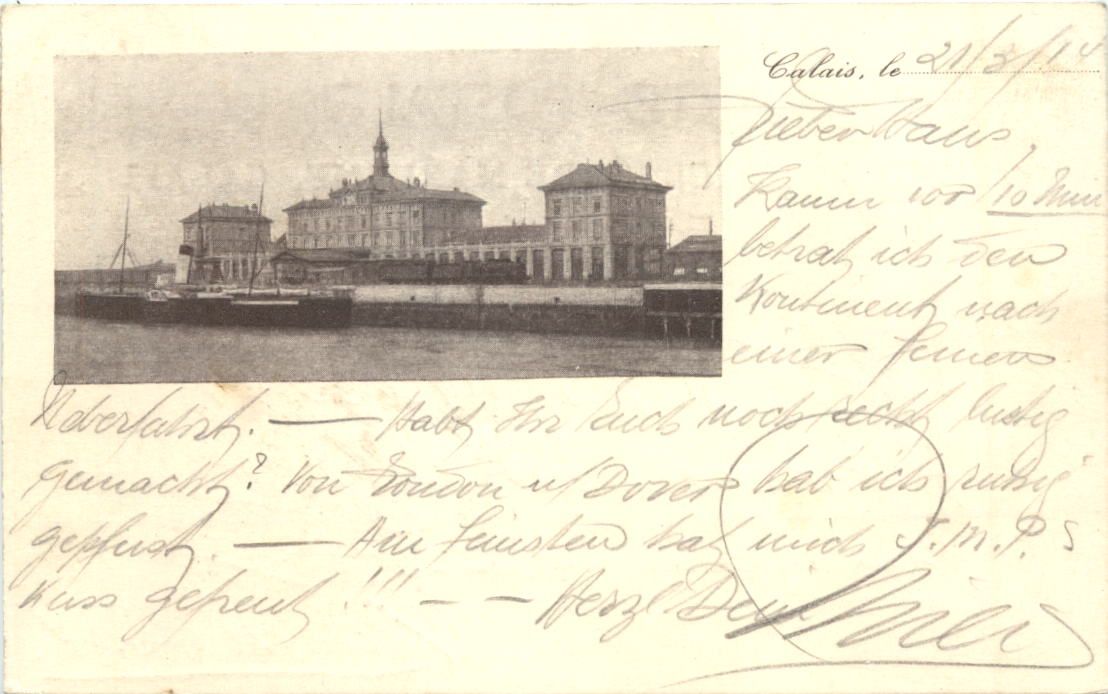 Calais, le 21/3/14
Lieber Hans,
Kaum vor 10 Min
betrat ich den
Kontinent nach
einer feinen
Ueberfahrt. — Habt Ihr Euch noch recht lustig
gemacht? Von London n/Dover hab ich ruhig
gepfust. — Am feinsten hat mich J.M.P.s
Kuss gefreut!!! — — Herzl Dein